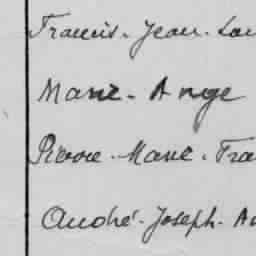 Francis. Jean. Lou
Marie. Ange
Pierre. Marie. Fra
André. Joseph. Au